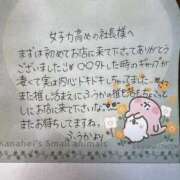 女子力高めの社長様へ
まずは初めてお店に来て下さってありがとう
ございました!! 〇〇外した時のギャップが
凄くて実は内心ドキドキしちゃってました…
また推し活まえにふうかの推させる
お店に来て下さいな♡
またお待ちしてますね。
ふうかより
Kanahei's Small animals